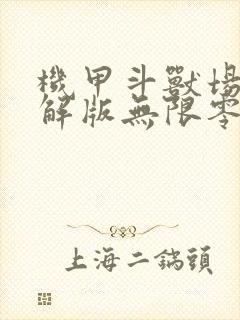 機甲斗獸場
解版無限零
上海二鍋頭